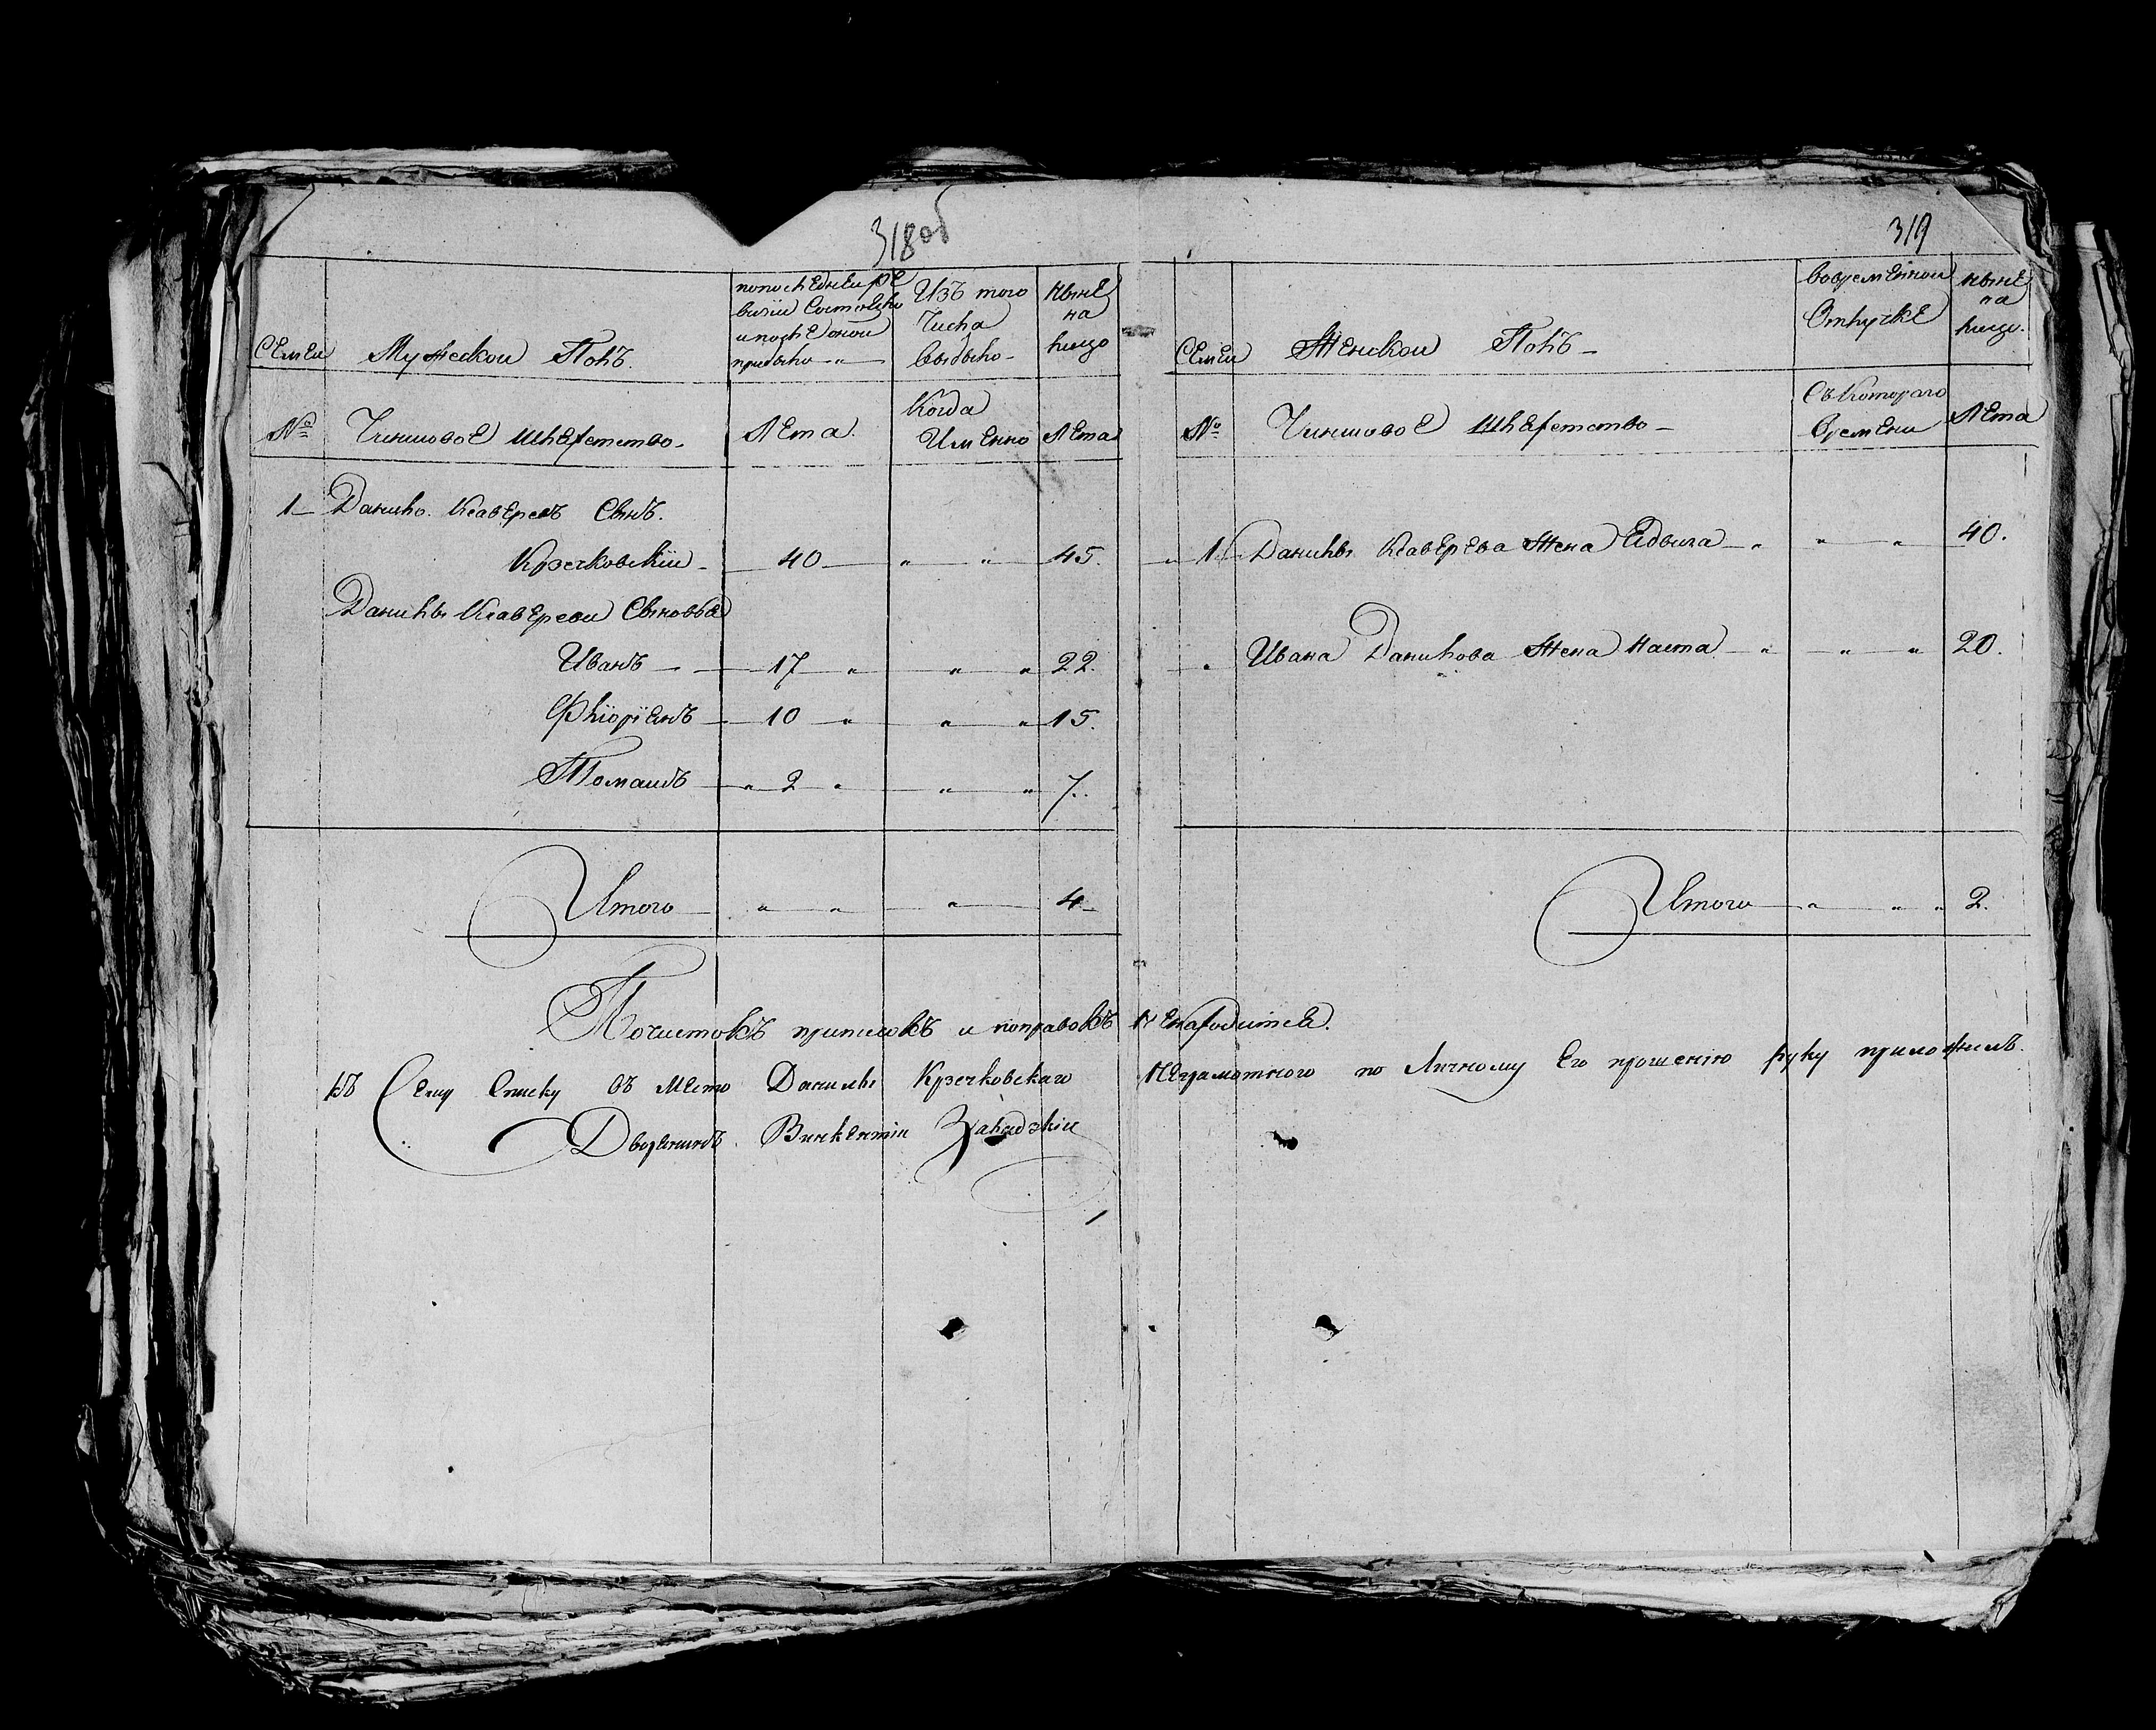 318 об
Семеи
Мужескои Полъ.
по последнеи ре
визіи состояло
и после онои
прибыло
Изъ того
числа
выбыло
ныне
на
лицо
№
Чиншовое шляхетство
Лета.
Когда
Именно
Лета
1 Данило Ксаверевъ Сынъ.
Кречковскіи 40 " " 45.
Данилы Ксавереви Сыновья
Иванъ 17 " " " 22.
Флоріенъ 10 " " " 15.
Томашъ " 2 " " " 7.
Итого " " " 4
319
Семеи
Женскои Полъ
во временнои
Отлучке
ныне
на
лицо.
№
Чиншовое шляхетство
Съ котораго
времени
Лета
" 1 Данилы Ксаверева Жена Едвига " " " 40.
" Ивана Данилова Жена Наста " " " 20.
Итого " " " 2.
Почистокъ приписокъ и поправокъ ненаходитсе.
къ Сему Списку въ место Данилы Кречковскаго неграмотного по Личному Его прошенію руку приложилъ.
Дворенинъ Винкентіи